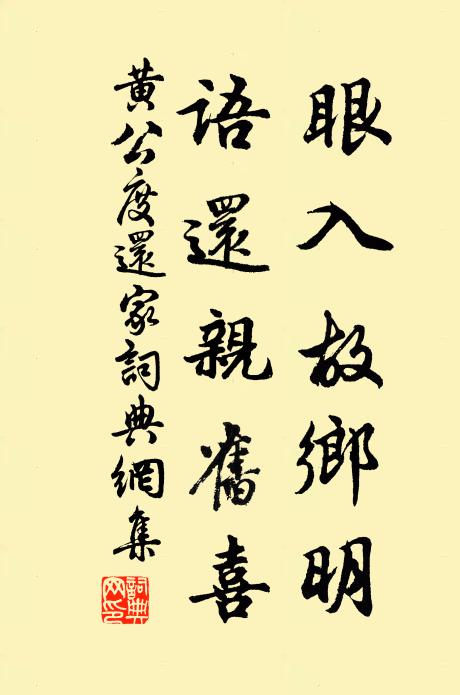 眼入故鄉明
語還親舊喜
黃公度還家詞典網集
詞典網印